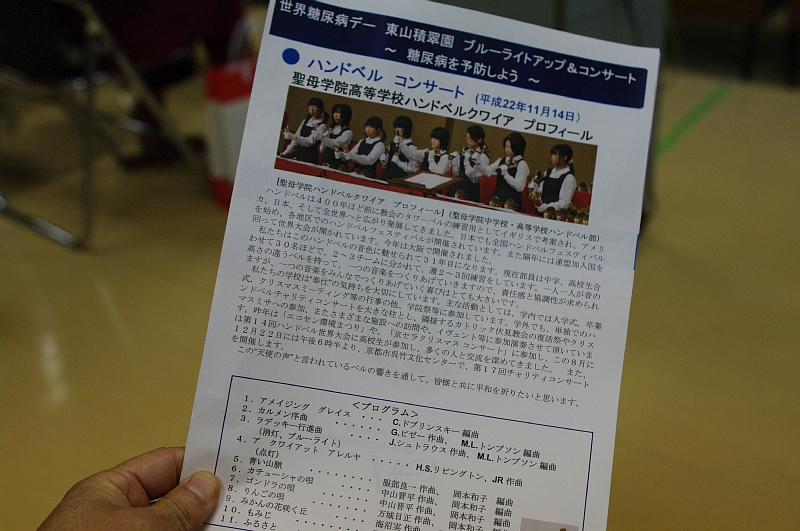 世界糖尿病デー 東山積翠園 ブルーライトアップ&コンサート
～ 糖尿病を予防しよう ～
● ハンドベル コンサート (平成22年11月14日)
聖母学院高等学校ハンドベルクワイア プロフィール
【聖母学院ハンドベルクワイア プロフィール】(聖母学院中学校・高等学校ハンドベル部)
ハンドベルは400年ほど前に教会のタワーベルの練習用としてイギリスで考案され、アメリ
カ、日本、そして全世界へと広がり発展してきました。日本でも全国ハンドベルフェスティバル
を始め、各地区でのハンドベルフェスティバルが開催されています。また隔年には連盟加入国を
回って世界大会が開かれています。今年は大阪で開催されました。
私たちはこのハンドベルの音色に魅せられて31年目になります。現在部員は中学、高校生合
わせて30名ほどで、2～3チームに分かれて、週2～3回練習をしています。一人一人が音の
高さの違うベルを持って、一つの音楽をつくりあげていきますので、責任感と協調性が求められ
ますが、一つの音楽をみんなでつくりあげていく喜びはとても大きいです。
私たちの学校は"奉仕"の気持ちを大切にしています。主な活動としては、学内では入学式、卒業
式、クリスマスミーティング等の行事の他、学院祭等に参加しています。学外でも、単独でのハ
ンドベルチャリティコンサートを大きな柱とし、隣接するカトリック伏見教会の復活祭やクリス
マスミサへの参加、またさまざまな施設への訪問や、イヴェント等に参加演奏させて頂いていま
す。昨年は「エコセン環境まつり」や、「京セラクリスマス コンサート」に参加し、この8月に
は第14回ハンドベル世界大会に高校生が参加し、多くの人と交流を深めてきました。 また、
12月22日には午後6時半より、京都市呉竹文化センターで、第17回チャリティコンサート
を開催します。
この"天使の声"と言われているベルの響きを通して、皆様と共に平和を祈りたいと思います。
＜プログラム＞
1．アメイジング グレイス ・・・・・ C.ドブリンスキー 編曲
2．カルメン序曲 ・・・・・・ G.ビゼー 作曲、 M.L.トンプソン 編曲
3．ラデッキー行進曲 ・・・・・ J.シュトラウス 作曲、M.L.トンプソン 編曲
(消灯、ブルーライト)
4．ア クワイアット アレルヤ ・・・・・ H.S.リビングトン、JR 作曲
(点灯)
5．青い山脈 ・・・・・・・・ 服部良一 作曲、 岡本和子 編曲
6．カチューシャの唄 ・・・・・ 中山晋平 作曲、 岡本和子 編曲
7．ゴンドラの唄 ・・・・・・ 中山晋平 作曲、 岡本和子 編曲
8．りんごの唄 ・・・・・・・ 万城目正 作曲、 岡本和子
9．みかんの花咲く丘 ・・・・・ 海沼実 作曲、 岡本
10．もみじ
11．ふるさと